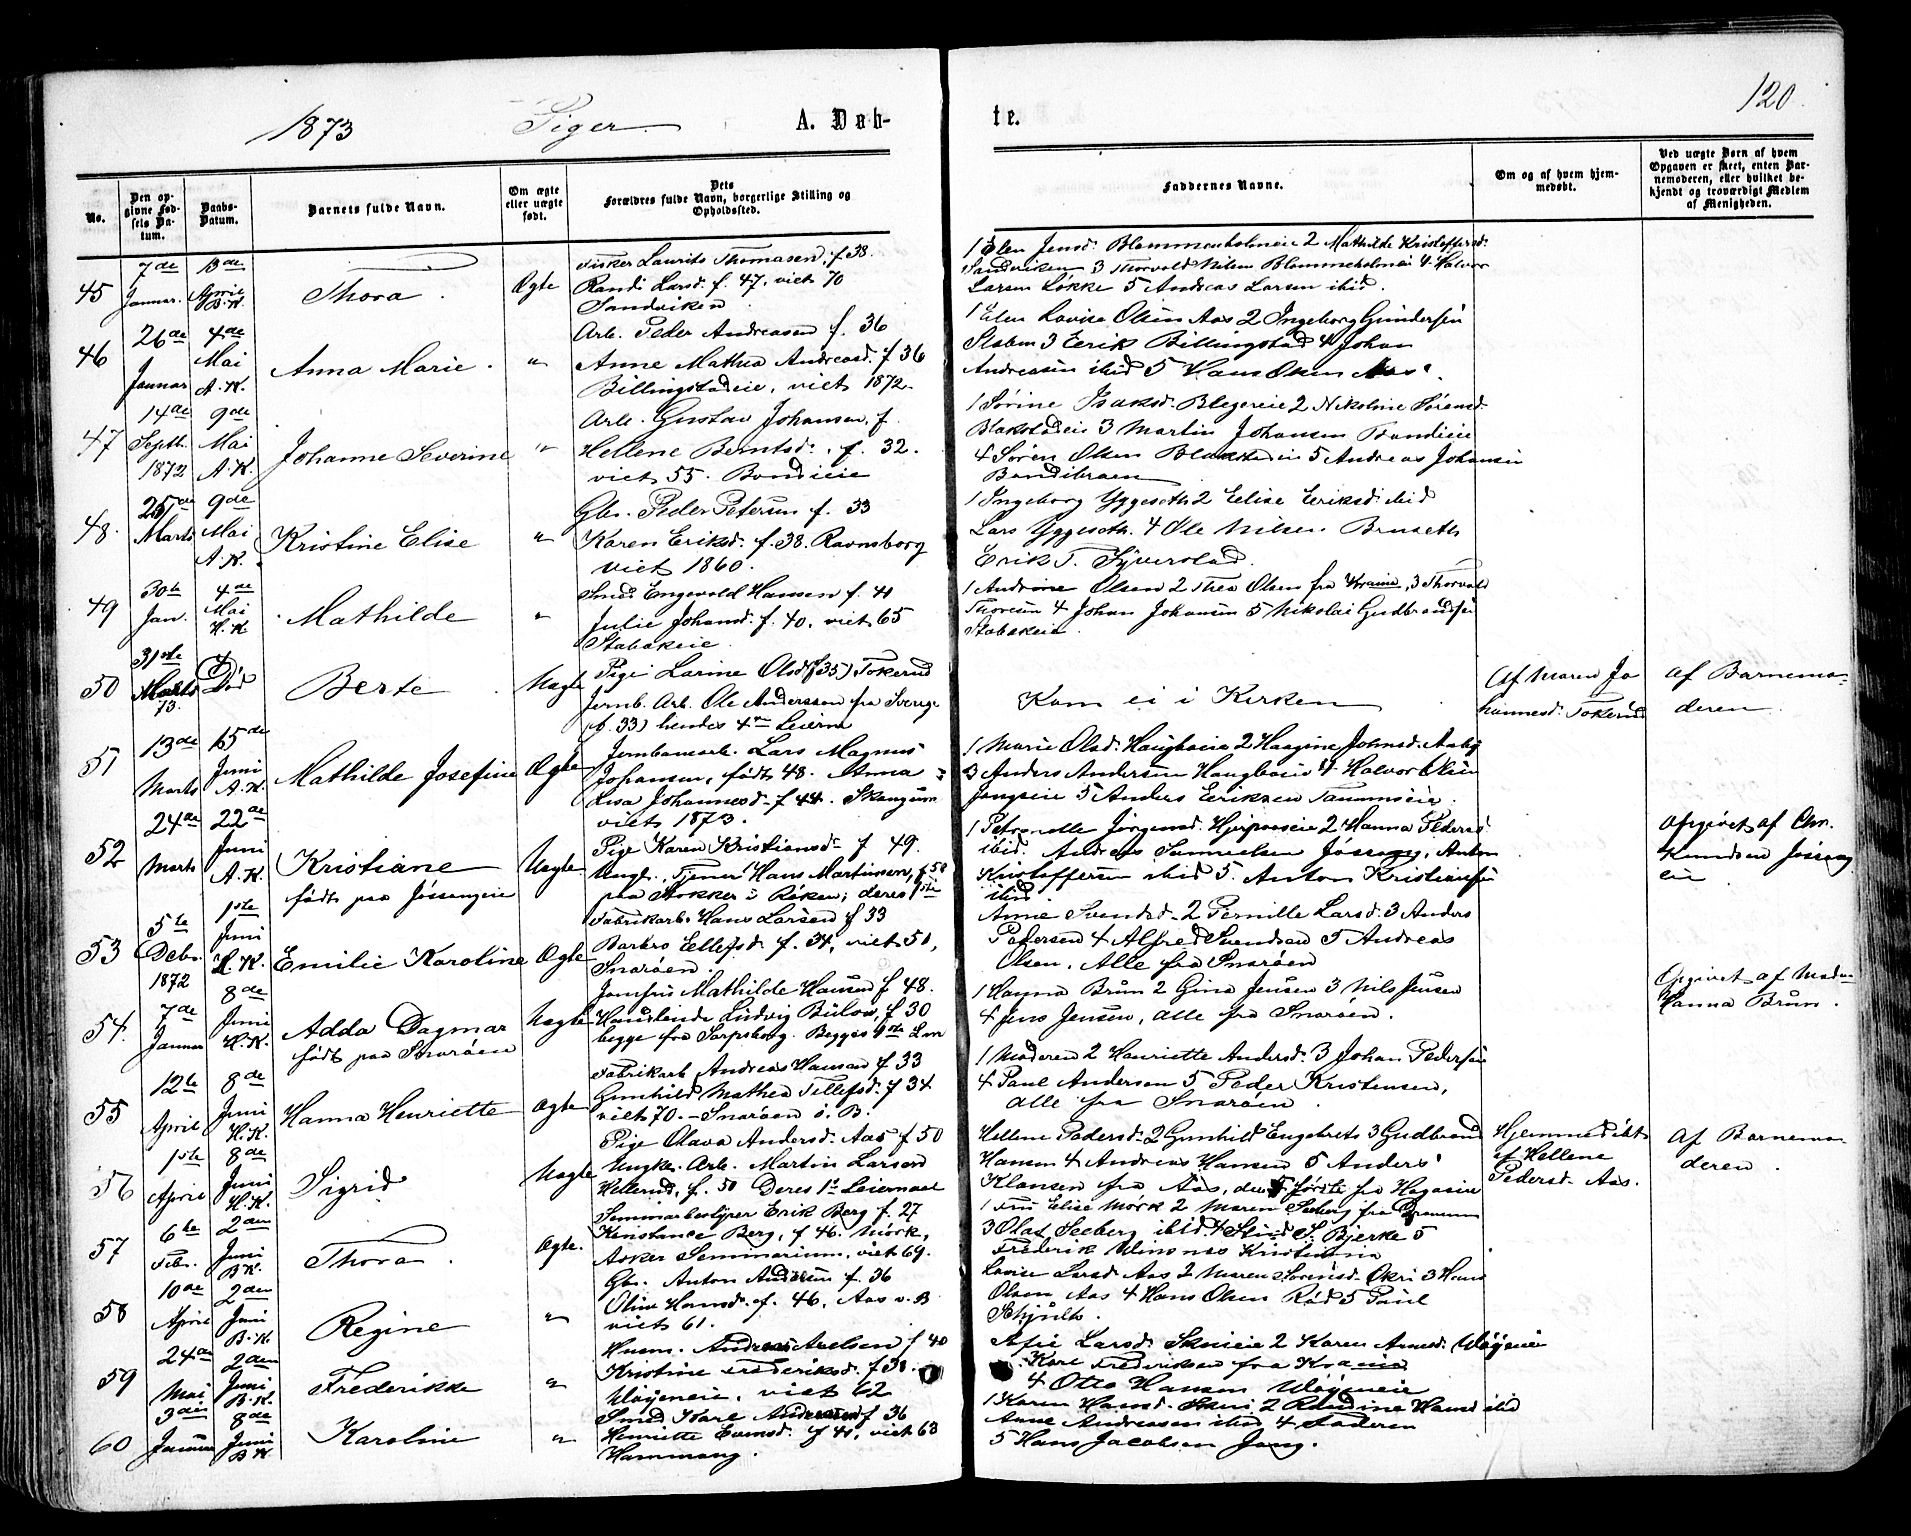 1873 Piger. A. Døb-
te. 120.
No.
Den op-
givne Fød-
sels Da-
tum.
Daabs-
Datum.
Barnets fulde Navn.
Om ægte
eller uægte
født.
Dets
Forældres fulde Navn, borgerlige Stilling og
Opholdssted.
Faddernes Navne.
Om og af hvem hjem-
medøbt.
Ved uægte Børn af hvem
Opgaven er skeet, enten Bar-
nemoderen, eller hvilket be-
kjendt og troværdigt Medlem
af Menigheden.
45
7de
Januar.
13de
April
B.K.
Thora.
Ægte
Fisker Laurits Thomasen, f. 38.
Randi Larsd. f. 47, viet 70
Sandviken
1 Elen Jensd. Blommenholmeie 2 Mathilde Kristoffersd.
Sandviken 3 Thorvald Nilsen Blommeholmeie 4 Halvor
Larsen Løkke 5 Andreas Larsen ibid.
46
26de
Januar
4de
Mai
A.K.
Anna Marie.
"
Arb. Peder Andreasen f. 36
Anne Mathea Andreasd. f 36
Billingstadeie, viet 1872.
1 Elen Lovise Olsen Aas 2 Ingeborg Gundersen
Staben 3 Erik Billingstad 4 Johan
Andreasen ibid 5 Hans Olsen Aas.
47
14de
Septb.
1872
9de
Mai
A.K.
Johanne Severine
"
Arb. Gustav Johansen, f.
Hellene Berntsd. f. 32.
viet 55. Bondieie
1 Sørine Isaksd. Blegereie 2 Nikoline Sørensd.
Blakstadeie 3 Martin Johansen Bondieie
4 Søren Olsen Blakstadeie 5 Andreas Johansen
Bondibraaten
48.
25de
Marts
9de
Mai
A.K.
Kristine Elise
"
Gbr. Peder Petersen f. 33
Karen Eriksd. f. 38. Ravnsborg
viet 1860.
1 Ingeborg Yggeseth 2 Elise Eriksd. ibid
Lars Yggeseth. 4 Ole Nilsen Bruseth
Erik T. Syverstad.
49
30te
Jan.
4de
Mai
H.K
Mathilde
"
Smed Engevold Hansen f. 41
Julie Johansd. f. 40, viet 65
Stabækeie.
1 Andrine Olsen 2 Thea Olsen fra Kraina, 3 Thorvald
Thoresen 4 Johan Johansen 5 Nikolai Gudbrandsen
Stabækeie.
50
31ste
Marts
73.
Død
Berte
Uægte
Pige Larine Olsd (f 35) Tokerud
Jernb. Arb. Ole Andersson fra Sverige
(f. 33) hendes 4de Leierm
Kom ei i Kirken
Af Maren Jo
hannesd. Tokerud
af Barnemo-
deren.
51
13de
Marts
15de
Juni
A.K.
Mathilde Josefine
Ægte
Jernbanearb. Lars Magnus
Johansen, født 48. Anna
Lisa Johannesd. f 44. Skaugum
viet 1873.
1 Marie Olsd. Haugboeie 2 Haagine Johnsd. Aaby
3 Anders Andersen Haugboeie 4 Halvor Olsen
Jongseie 5 Anders Eriksen Tanumseie.
52
24de
Marts
22de
Juni
A.K.
Kristiane
født paa Jössongeie
Uægte
Pige Karen Kristiansd. f 49.
Ungk. Tjener Hans Martinsen, f 50
paa Stokker i Røken; deres 1ste
1 Petronelle Jörgensd. Hjerpaaseie 2 Hanna Pedersd.
ibid. Andreas Samuelsen Jössong, Anton
Kristoffersen ibid 5. Anton Kristiansen
ibid.
Opgivet af Chr.
Knudsen Jössong
eie
53
5te
Debr.
1872
1ste
Juni
H.K.
Emilie Karoline
Ægte
Fabrikarb. Hans Larsen f 33
Barbro Ellefsd. f. 34, viet 50,
Snarøen.
Anne Svendsd. 2 Pernille Larsd. 3 Anders
Pedersen 4 Alfred Svendsen 5 Andreas
Olsen. Alle fra Snarøen
54.
7de
Januar
8de
Juni
H.K.
Adda Dagmar
født paa Snarøen
Uægte
Jomfru Mathilde Hansen f 48.
Handlende Ludvig Bülow, f 30
begge fra Sarpsborg. Begges 1ste Lm
1 Hanna Brun 2 Gina Jensen 3 Nils Jensen
4 Jens Jensen, alle fra Snarøen.
Opgivet af Mad.
Hanna Brun.
55
12te
April
8de
Juni
H.K.
Hanna Henriette
Ægte
Fabrikarb Andreas Hansen f 33
Gunhild Mathea Tellefsd. f 34
viet 70. – Snarøen ö. B.
1 Moderen 2 Henriette Andersd. 3 Johan Pedersen
4 Paul Andersen 5 Peder Kristensen,
alle fra Snarøen.
56
1ste
April
8de
Juni
H.K.
Sigrid
Uægte
Pige Olava Andersd. Aas f 50
Ungkr. Arb. Martin Larsen
Hellerud, f. 50 Deres 1ste Leiermaal
Hellene Pedersd. 2 Gunhild Engebrets 3 Gudbrand
Hansen 4 Andreas Hansen 5 Anders
Klausen fra Aas, de første fra Hagaeie
Hjemmedøbt
af Hellene
Pedersd. Aas.
Af Barnemo-
deren.
57
6te
Febr.
2den
Juni
B.K.
Thora.
Ægte.
Seminarbestyrer Erik Berg f. 27
Konstance Berg, f 46. Mörk,
Asker Seminarium, viet 69.
1 Fru Elise Mörk 2 Maren Seeberg fra Drammen
3 Olaf Seeberg ibid. 4 Stud. S. Bjerke 5
Frederik Winsnes Kristiania
58
10de
April
2den
Juni
B.K
Regine
"
Gbr. Anton Andersen f. 36
Oline Hansd. f. 46. Aas v. B
viet 61.
Lovise Larsd. Aas 2 Maren Sørensd. Økri 3 Hans
Olsen Aas 4 Hans Olsen Rød 5 Paul
Skjulth.
59
24de
Mai
2den
Juni
B.K.
Frederikke
"
Husm. Andreas Axelsen f 40
Kristine Frederiksd. f 38.
Wøyeneie, viet 62
Afie Larsd. Skuieie 2 Karen Arnesd. Wøyeneie
Karl Fredriksen fra Kraina
4 Otto Hansen Wøyeneie
60
3die
Januar
8de
Juni
B.K
Karoline
"
Smed Karl Andersen f 36
Henriette Evensd. f 41, viet 63
Hammang.
1 Karen Hansd. Skui 2 Randine Hansd ibid
Anne Andreasen ibid 4 Faderen
5 Hans Jacobsen Jong.